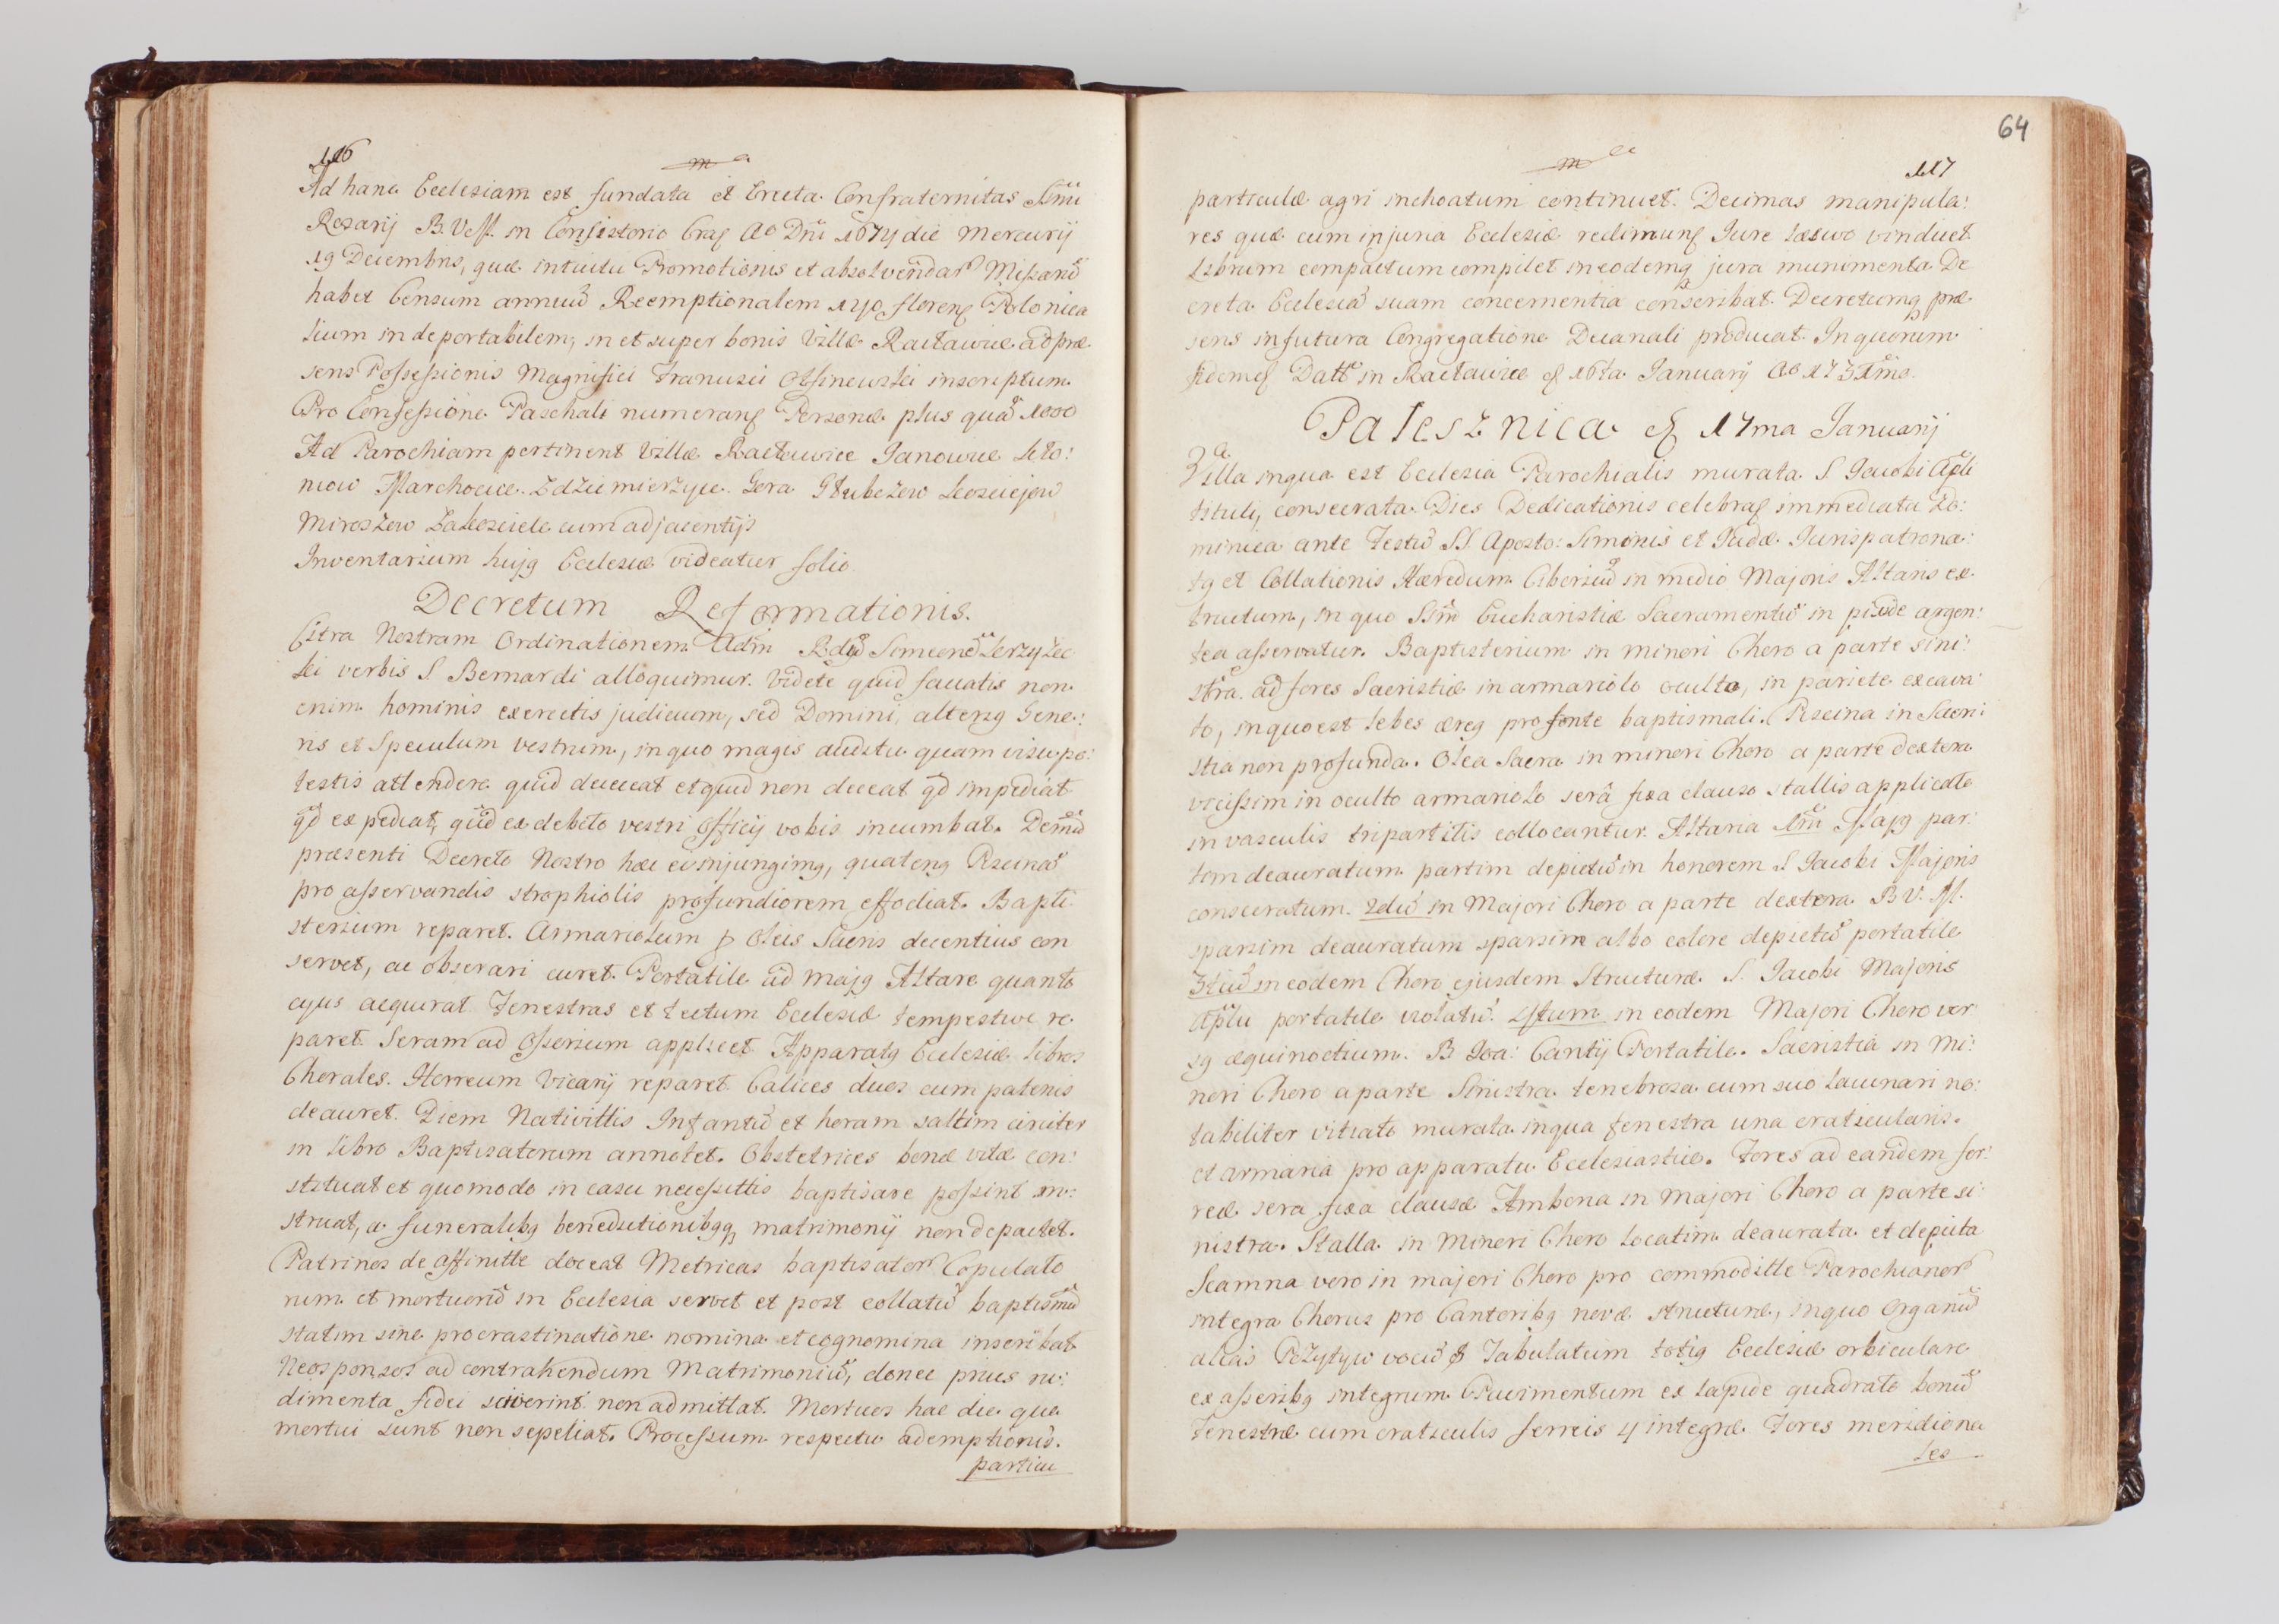 116
Ad hanc Ecclesiam est fundata et Erecta Confraternitas Smi
Rosarij B. V. M. in Consistorio Crac Ao Dni 1674 die Mercurij
19 Decembris, quæ intuitu Promotionis et absolvendar Missarũ
habet Censum annuũ Reemptionalem 140 floren Polonica
lium inde portabilem, in et super bonis Villæ Racławice ad præ
sens Possessionis Magnifici Francisci inscriptum
Pro Confessione Paschali numeran Personæ plus quã 1000
Ad Parochiam pertinent Villæ Racławice Janowice
niow Marchocice Gora Głubczow Kosciejow
Miroszow Zakosciele cum adjacentijs
Inventarium hujg Ecclesiæ videatur folio
Decretum Reformationis.
Citra Nostram Ordinationem Adm Rdũ Simeonẽ
ki verbis S Bernardi alloquimur. Videte quid faciatis non
enim hominis exercetis judicium, sed Domini, alterig Gene:
ris et Speculum vestrum, in quo magis auditu quam visu po:
testis attendere quid deceat et quid non deceat qd impediat
qd expediat, quid ex debito vestri Officij vobis incumbat. Demũ
præsenti Decreto Nostro hæc ei injungimg, quateng Piscinã
pro asservandis strophiolis profundiorem effodiat. Bapti
sterium reparet. Armariolum p Oleis Sacris decentius con
servet, ac obserari curet. Portatile ad Majg Altare quanto
cyus acquirat Fenestras et tectum Ecclesiæ tempestive re
paret. Seram ad Ossorium applicet Apparatg Ecclesiæ libros
Chorales. Horreum Vicarij reparet Calices duos cum patenis
deauret. Diem Nativittis Infantũ et horam saltim circiter
in libro Baptisatorum annotet. Obstetrices bonæ vitæ con:
stituat et quomodo in casu necessittis baptisare possint in:
struat, a funeralibg benedictionibgq matrimonij non depactet.
Patrinos de affinitte doceat Metricas baptisator Copulato
rum et mortuorũ in Ecclesia servet et post collatũ baptismũ
statim sine procrastinatione nomina et cognomina inseribat
Neosponsos ad contrahendum Matrimoniũ, donec prius ru:
dimenta fidei sciverint non admittat. Mortuos hac die qua
mortui sunt non sepeliat. Processum respectu ademptionis
particu
64
117
particulæ agri inchoatum continuet. Decimas manipula:
res quæ cum injuria Ecclesiæ redimunt Jure læsivo vindicet
Librum compactum compilet in eodemq jura munimenta De
creta Ecclesiã suam concernentia conscribat. Decretumq præ
sens in futura Congregatione Decanali producat. In quorum
fidem Datt in Racławice 16ta Januarij Ao 1731mo.
Palesznica 17ma Januarij
Villa in qua est Ecclesia Parochialis murata S Jacobi Apli
tituli, consecrata. Dies Dedicationis celebra immediata Do:
minica ante Festũ SS Aposto: Simonis et Judæ Jurispatrona:
tg et Collationis Hæredum. Ciboriũ in medio Majoris Altaris ex
tructum, in quo Ssm̃ Eucharistiæ Sacramentũ in pixide argen:
tea asservatur. Baptisterium in minori Choro a parte sini:
stra ad fores Sacristiæ in armariolo oculto, in pariete excava
to, in quo est lebes æreg pro fonte baptismali. Piscina in Sacri:
stia non profunda. Olea Sacra in minori Choro a parte dextera
vicissim in oculto armariolo serâ fixa clauso stallis applicato
in vasculis tripartitis collocantur. Altaria 1mũ Majg par:
tim deauratum partim depictũ in honorem S Jacobi Majoris
consecratum. 2dũ in Majori Choro a parte dextera B V. M.
sparsim deauratum sparsim albo colore depictũ portatile
3tiũ in eodem Choro ejusdem Structuræ S. Jacobi Majoris
Apli portatile violatũ. 4tum in eodem Majori Choro ver
sg æquinoctium B Joa: Cantij Portatile. Sacristia in Mi:
nori Choro a parte Sinistra tenebrosa cum suo lacunari no:
tabiliter vitiato murata in qua fenestra una craticularis.
et armaria pro apparatu Ecclesiastico. Fores ad eandem for:
reæ sera fixa clausæ Ambona in Majori Choro a parte si
nistra. Stalla in Minori Choro locatim deaurata et depicta
Scamna vero in majori Choro pro commoditte Parochianor
integra Chorus pro Cantoribg novæ structuræ, in quo Organũ
alias Pozytyw vocũ 8 Tabulatum totig Ecclesiæ orbiculare
ex asseribg integrum. Pavimentum ex lapide quadrato bonũ
Fenestræ cum craticulis ferreis 4 integræ Fores meridiona
les